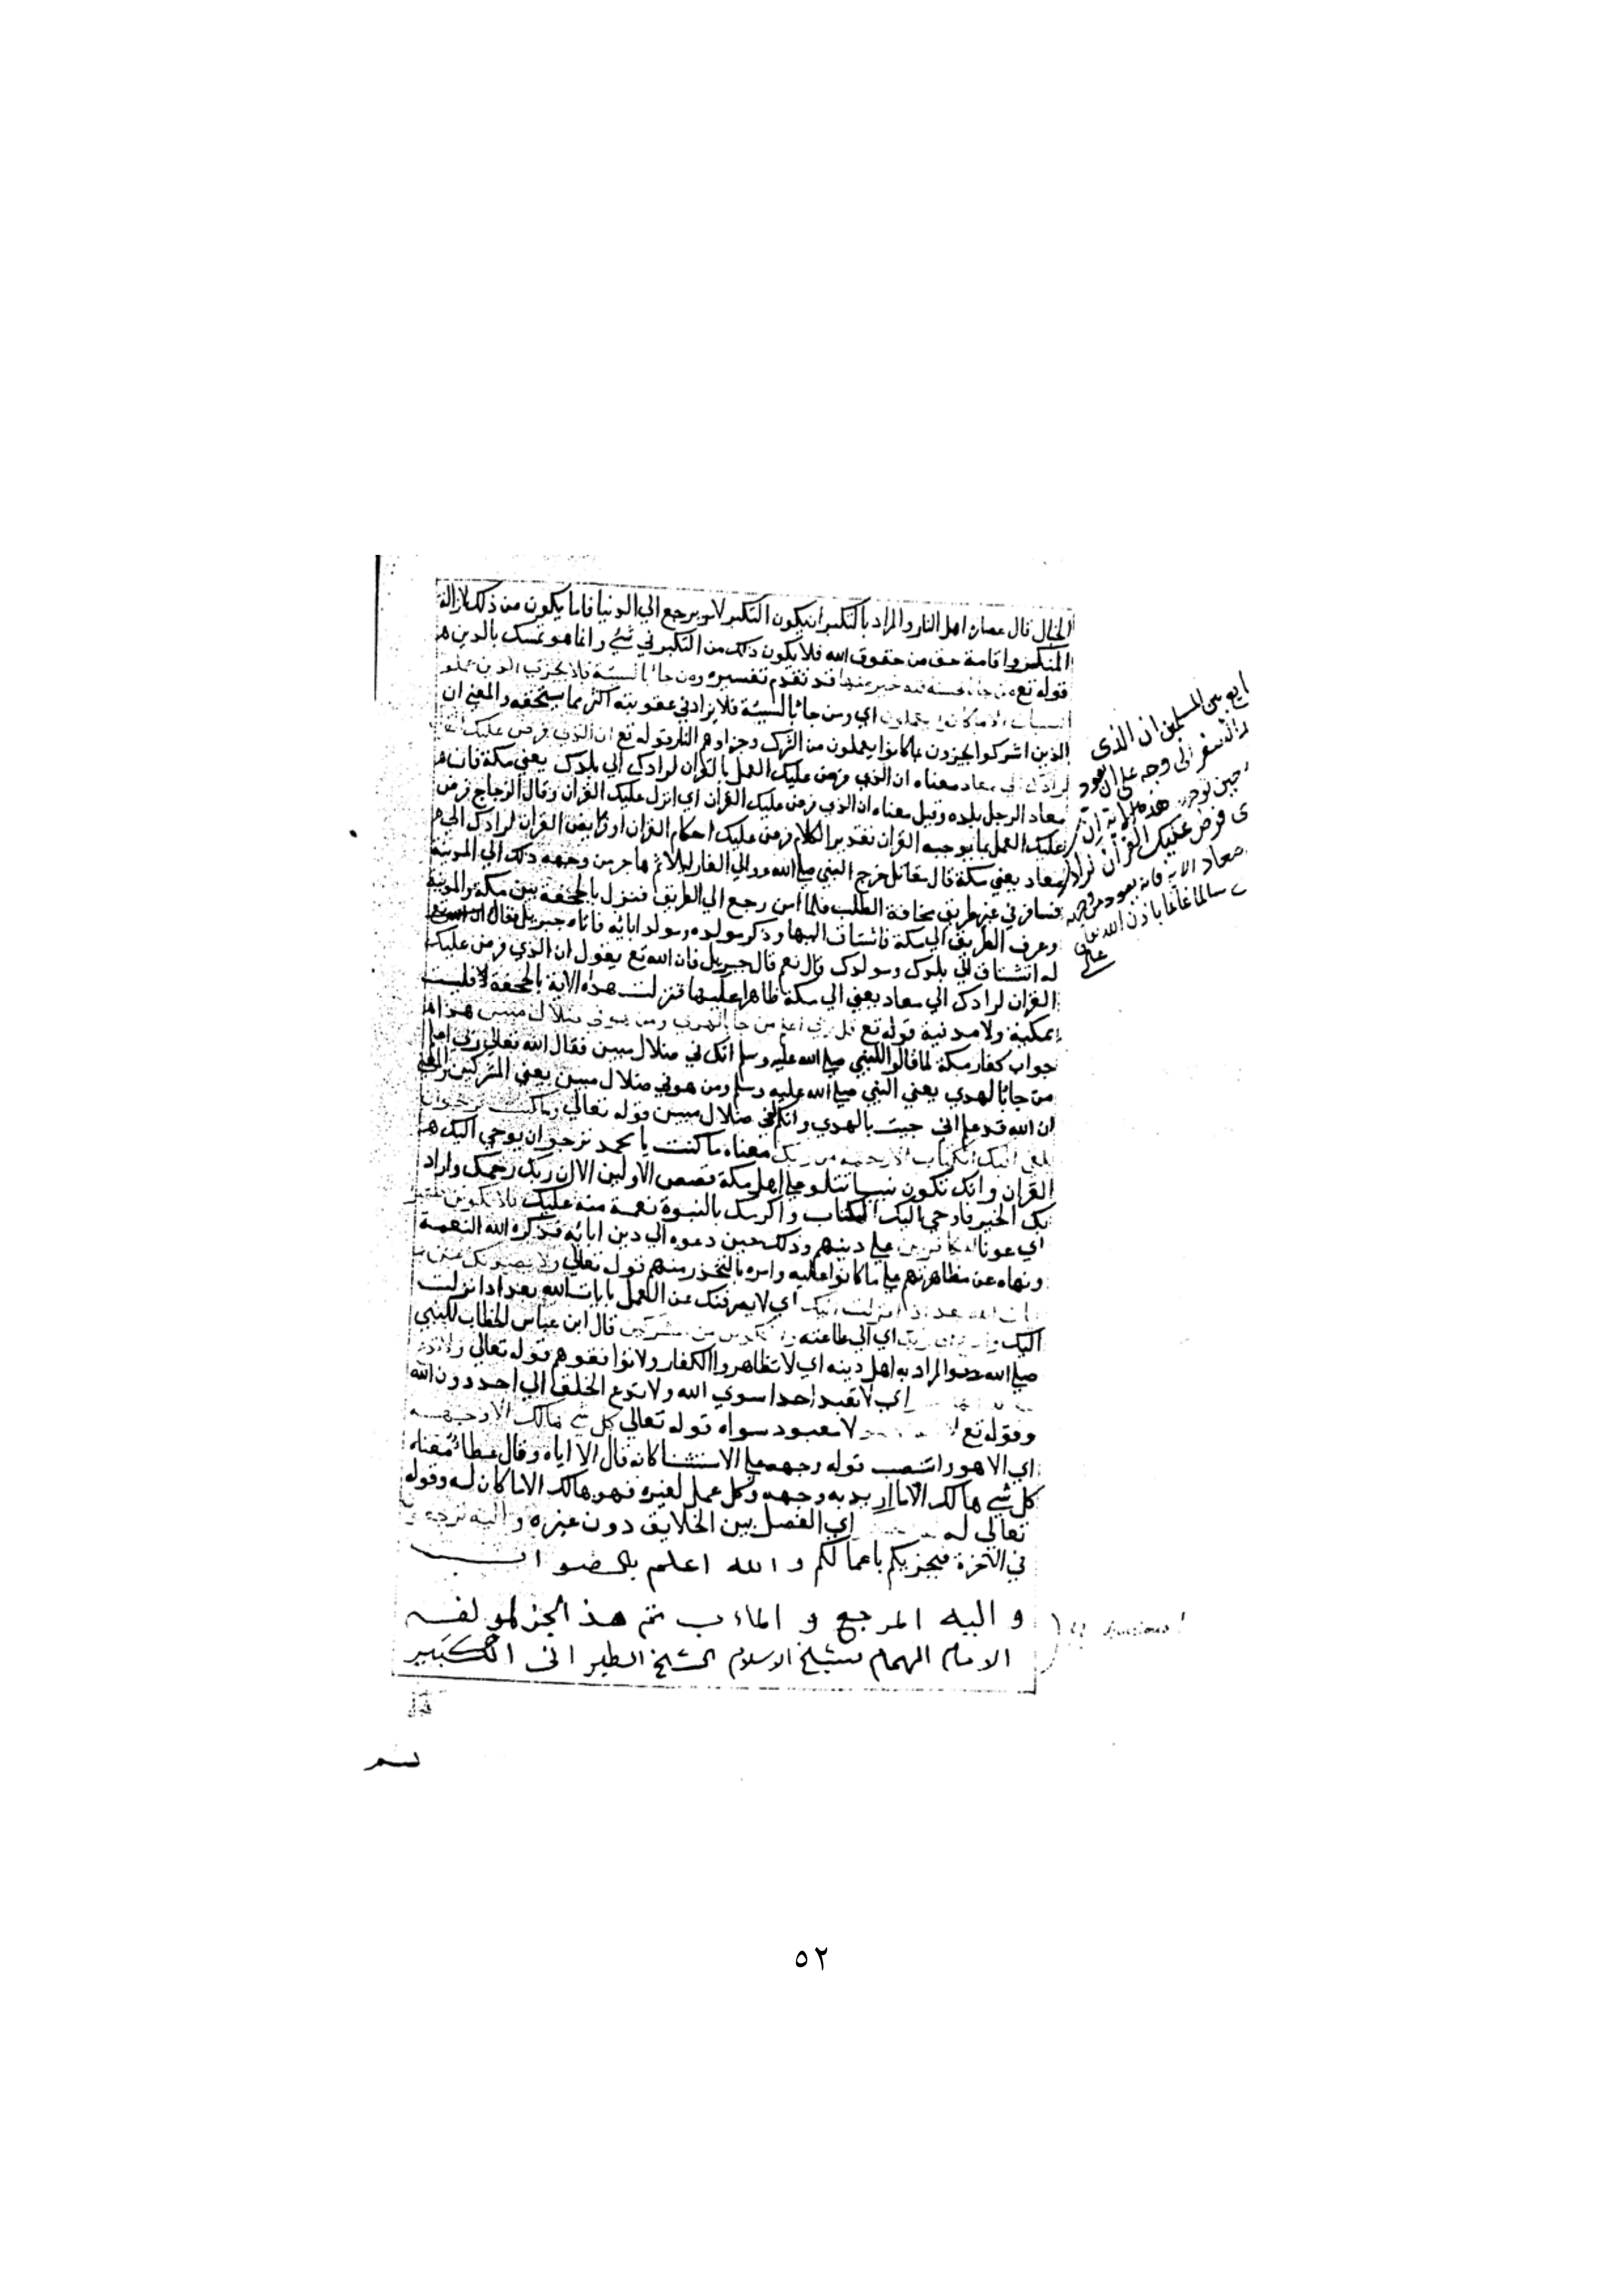 الخبال قال عصارة اهل النار والمراد بالتكبر ان يكون التكبر لامر يرجع الي الدنيا فاما يكون من ذلك لازالة
المنكر واقامة حق من حقوق الله فلا يكون ذلك من التكبر في شي وانما هو تمسك بالدين
قوله تع من جا بالحسنة فله خير منها قد تقدم تفسيره ومن جا بالسيئة فلا يجزي الذين عملوا
السيات الا ما كانوا يعملون اي ومن جا بالسيئة فلا يزاد في عقوبته اكثر مما يستحقه والمعني ان
الذين اشركوا يجزون بما كانوا يعملون من الشرك وجزاوهم النار قوله تع ان الذي فرض عليك
لرادك الي معاد معناه ان الذي فرض عليك العمل بالقران لرادك الي بلدك يعني مكة فان
معاد الرجل بلده وقيل معناه ان الذي فرض عليك القران اي انزل عليك القران وقال الزجاج فرض
عليك العمل بما يوجبه القران تقدير الكلام فرض عليك احكام القران او فرايض القران لرادك الي
معاد يعني مكة قال مقاتل خرج النبي صلي الله الي الغار ليلا ثم هاجر من وجهه ذلك الي المدينة
فسافر في غير طريق مخافة الطلب فلما امن رجع الي الطريق فنزل بالجحفة بين مكة والمدينة
وعرف الطريق الي مكة فاشتاق اليها وذكر مولده ومولد ابائه فاتاه جبريل فقال
له اتشتاق الي بلدك ومولدك قال نعم قال جبريل فان الله تع يقول ان الذي فرض عليك
القران لرادك الي معاد يعني الي مكة ظاهرا عليها فنزلت هذه الاية بالجحفة لا فليست
بمكية ولا مدنية قوله تع قل ربي اعلم من جا بالهدي ومن هو في ضلال مبين هذا
جواب كفار مكة لما قالوا للنبي صلي الله عليه وسلم انك في ضلال مبين فقال الله تعالي ربي اعلم
من جا بالهدي يعني النبي صلي الله عليه وسلم ومن هو في ضلال مبين يعني المشركين والمعني
ان الله قد علم اني جيت بالهدي وانكم لفي ضلال مبين قوله تعالي وما كنت ترجوا ان
يلقي اليك الكتاب الا رحمة من ربك معناه ما كنت يا محمد ترجوا ان يوحي اليك
القران وانك تكون نبيا تتلو علي اهل مكة قصص الاولين الا ان ربك رحمك واراد
بك الخير فاوحي اليك الكتاب واكرمك بالنبوة نعمة منه عليك فلا تكونن ظهيرا
اي عونا للكافرين علي دينهم وذلك حين دعوه الي دين ابائه فذكره الله النعمة
ونهاه عن مظاهرتهم علي ما كانوا عليه وامره بالتحذر منهم قوله تعالي ولا يصدنك عن
ايات الله بعد اذ انزلت اليك اي لا يصرفنك عن العمل بايات الله بعد اذ انزلت
اليك وادع الي ربك اي الي طاعته ولا تكونن من المشركين قال ابن عباس الخطاب للنبي
صلي الله والمراد به اهل دينه اي لا تظاهروا الكفار ولا توافقوهم قوله تعالي ولا تدع
اي لا تعبد احدا سوي الله ولا تدع الخلق الي احد دون الله
وقوله تع لا معبود سواه قوله تعالي كل شي هالك الا وجهه
اي الا هو وانتصب قوله وجهه علي الاستثنا كانه قال الا اياه وقال عطاء معناه
كل شي هالك الا ما اريد به وجهه وكل عمل لغيره فهو هالك الا ما كان له وقوله
تعالي له اي الفصل بين الخلايق دون غيره واليه ترجعون
في الاخرة فيجزيكم باعمالكم والله اعلم بالصواب
واليه المرجع والماءب تم هذا الجز لمولفه
الامام الهمام شيخ الاسلام الشيخ الطبراني الكبير
المسلمين ان الذي
سفر الي وجه علي ان يعود
هذه الاية ان
فرض عليك القران لراد
معاد الاية فانه يعود من وجهه
سالما غانما باذن الله تعالي
٥٢